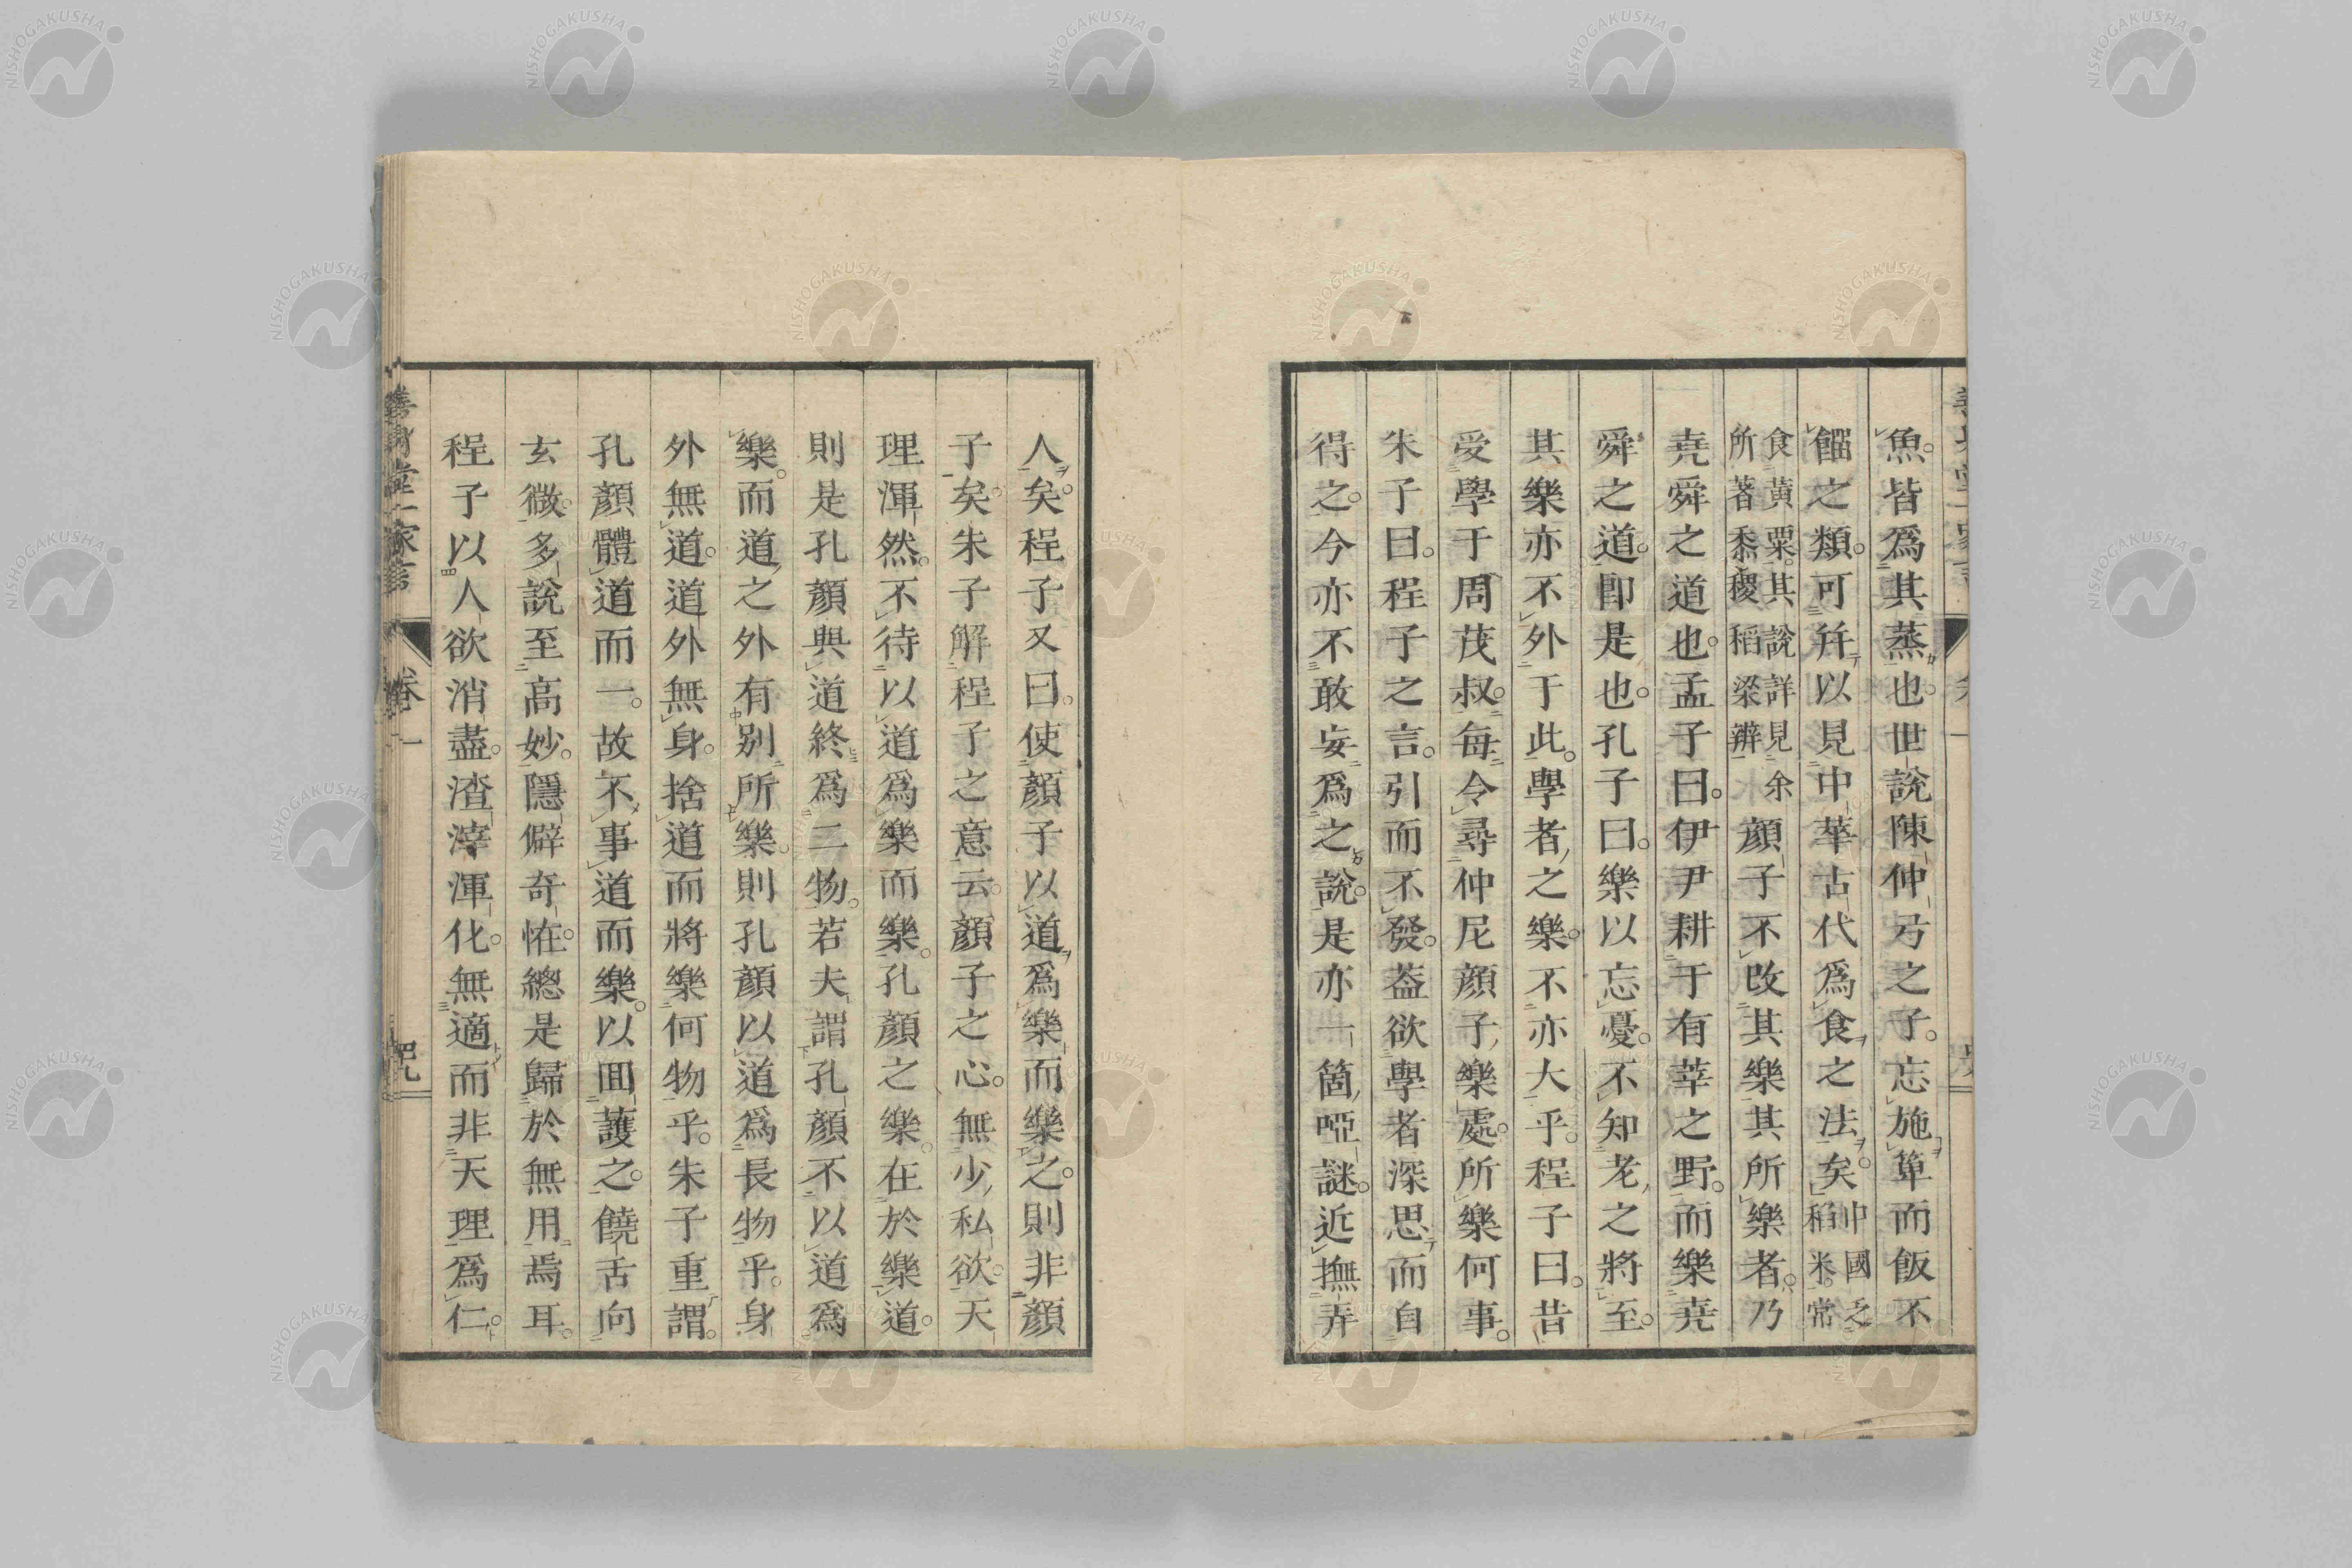 魚。皆爲其蒸也。世說陳仲弓之子。忘施箄而飯不
餾之類。可幷以見中華古代爲食之法矣。中國乏稻米。常
食黃粟。其說詳見余所著黍稷稻粱辨 顏子不改其樂。其所樂者。乃
堯舜之道也。孟子曰。伊尹耕于有莘之野。而樂堯
舜之道。卽是也。孔子曰。樂以忘憂。不知老之將至。
其樂亦不外于此。學者之樂。不亦大乎。程子曰。昔
受學于周茂叔。每令尋仲尼顏子樂處。所樂何事。
朱子曰。程子之言。引而不發。蓋欲學者深思而自
得之。今亦不敢妄爲之說。是亦一箇啞謎。近撫弄
人矣。程子又曰。使顏子以道爲樂而樂之。則非顏
子矣。朱子解程子之意云。顏子之心。無少私欲。天
理渾然。不待以道爲樂而樂。孔顏之樂。在於樂道。
則是孔顏與道終爲二物。若夫謂孔顏不以道爲
樂。而道之外有別所樂。則孔顏以道爲長物乎。身
外無道。道外無身。捨道而將樂何物乎。朱子重謂。
孔顏體道而一。故不事道而樂。以回護之。饒舌向
玄微。多說至高妙。隱僻奇恠。總是歸於無用焉耳。
程子以人欲消盡。渣滓渾化。無適而非天理爲仁。
養身堂一家言 卷一